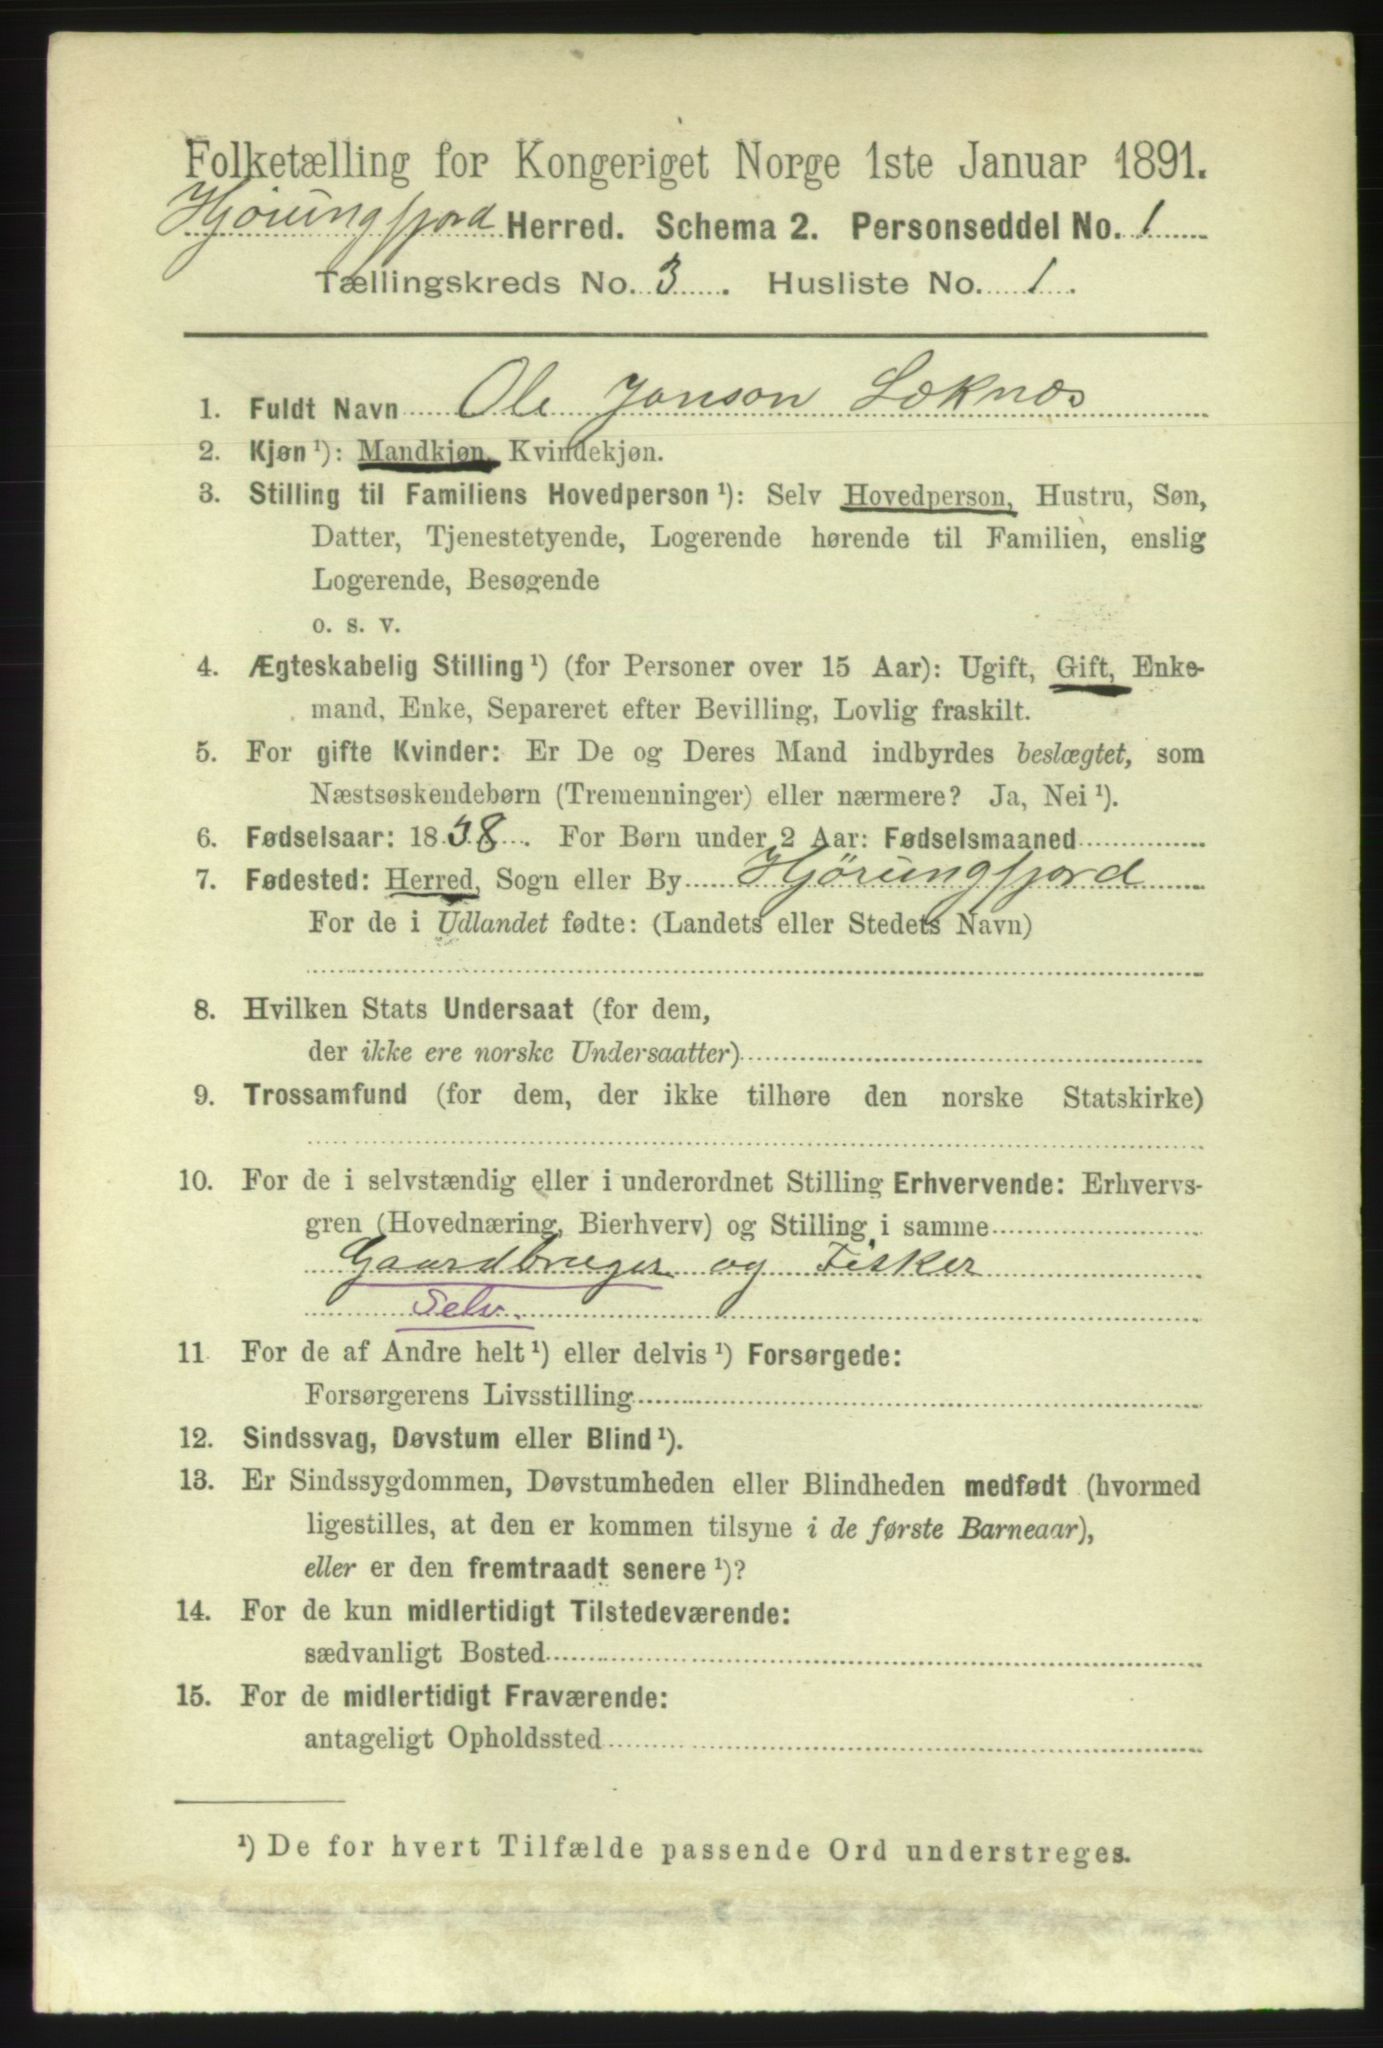 Folketælling for Kongeriget Norge 1ste Januar 1891.
Hjørungfjord Herred. Schema 2. Personseddel No. 1
Tællingskreds No. 3. Husliste No. 1.
1. Fuldt Navn Ole Janson Løknæs
2. Kjøn ¹): Mandkjøn, Kvindekjøn.
3. Stilling til Familiens Hovedperson ¹): Selv Hovedperson, Hustru, Søn,
Datter, Tjenestetyende, Logerende hørende til Familien, enslig
Logerende, Besøgende
o. s. v.
4. Ægteskabelig Stilling ¹) (for Personer over 15 Aar): Ugift, Gift, Enke-
mand, Enke, Separeret efter Bevilling, Lovlig fraskilt.
5. For gifte Kvinder: Er De og Deres Mand indbyrdes beslægtet, som
Næstsøskendebørn (Tremenninger) eller nærmere? Ja, Nei ¹).
6. Fødselsaar: 1838. For Børn under 2 Aar: Fødselsmaaned
7. Fødested: Herred, Sogn eller By Hjørungfjord
For de i Udlandet fødte: (Landets eller Stedets Navn)
8. Hvilken Stats Undersaat (for dem,
der ikke ere norske Undersaatter)
9. Trossamfund (for dem, der ikke tilhøre den norske Statskirke)
10. For de i selvstændig eller i underordnet Stilling Erhvervende: Erhvervs-
gren (Hovednæring, Bierhverv) og Stilling i samme
Gaardbruger og Fisker
Selv.
11 For de af Andre helt ¹) eller delvis ¹) Forsørgede:
Forsørgerens Livsstilling
12. Sindssvag, Døvstum eller Blind ¹).
13. Er Sindssygdommen, Døvstumheden eller Blindheden medfødt (hvormed
ligestilles, at den er kommen tilsyne i de første Barneaar),
eller er den fremtraadt senere ¹)?
14. For de kun midlertidigt Tilstedeværende:
sædvanligt Bosted
15. For de midlertidigt Fraværende:
antageligt Opholdssted
¹) De for hvert Tilfælde passende Ord understreges.